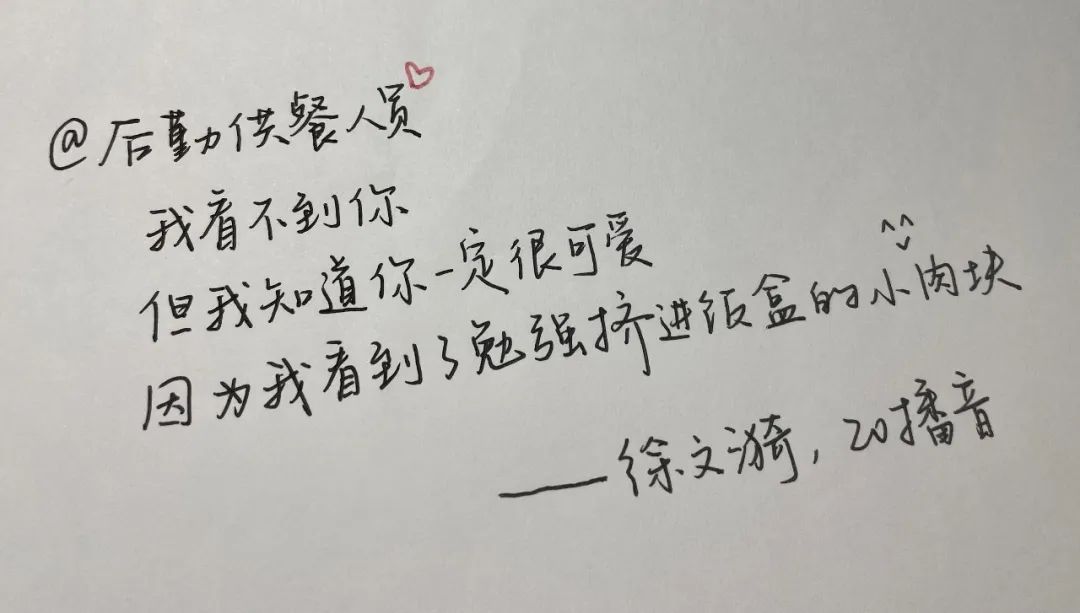 @后勤供餐人员
我看不到你
但我知道你一定很可爱
因为我看到了勉强挤进饭盒的小肉块
——徐文漪，20播音